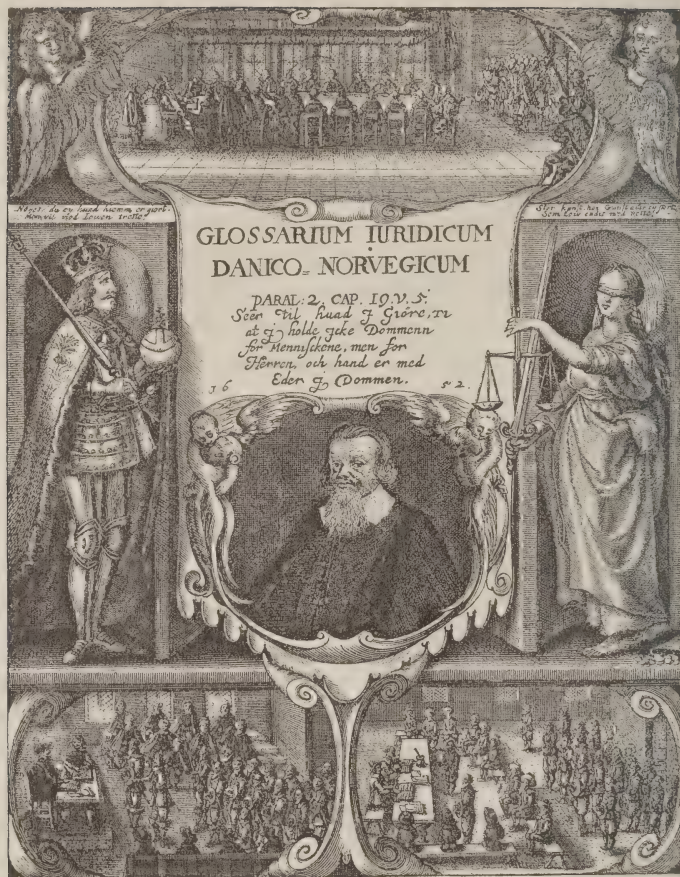 Norst du ey huad hiemm er giort
GLOSSARIUM IURIDICUM
DANICO= NORVEGICUM
PARAL: 2, CAP. 19. V. 5.
Seer til huad J Giöre, TI
at J holde jcke Dommenn
for Menniskene, men for
Herren, och hand er med
Eder J Dommen.
16 52.